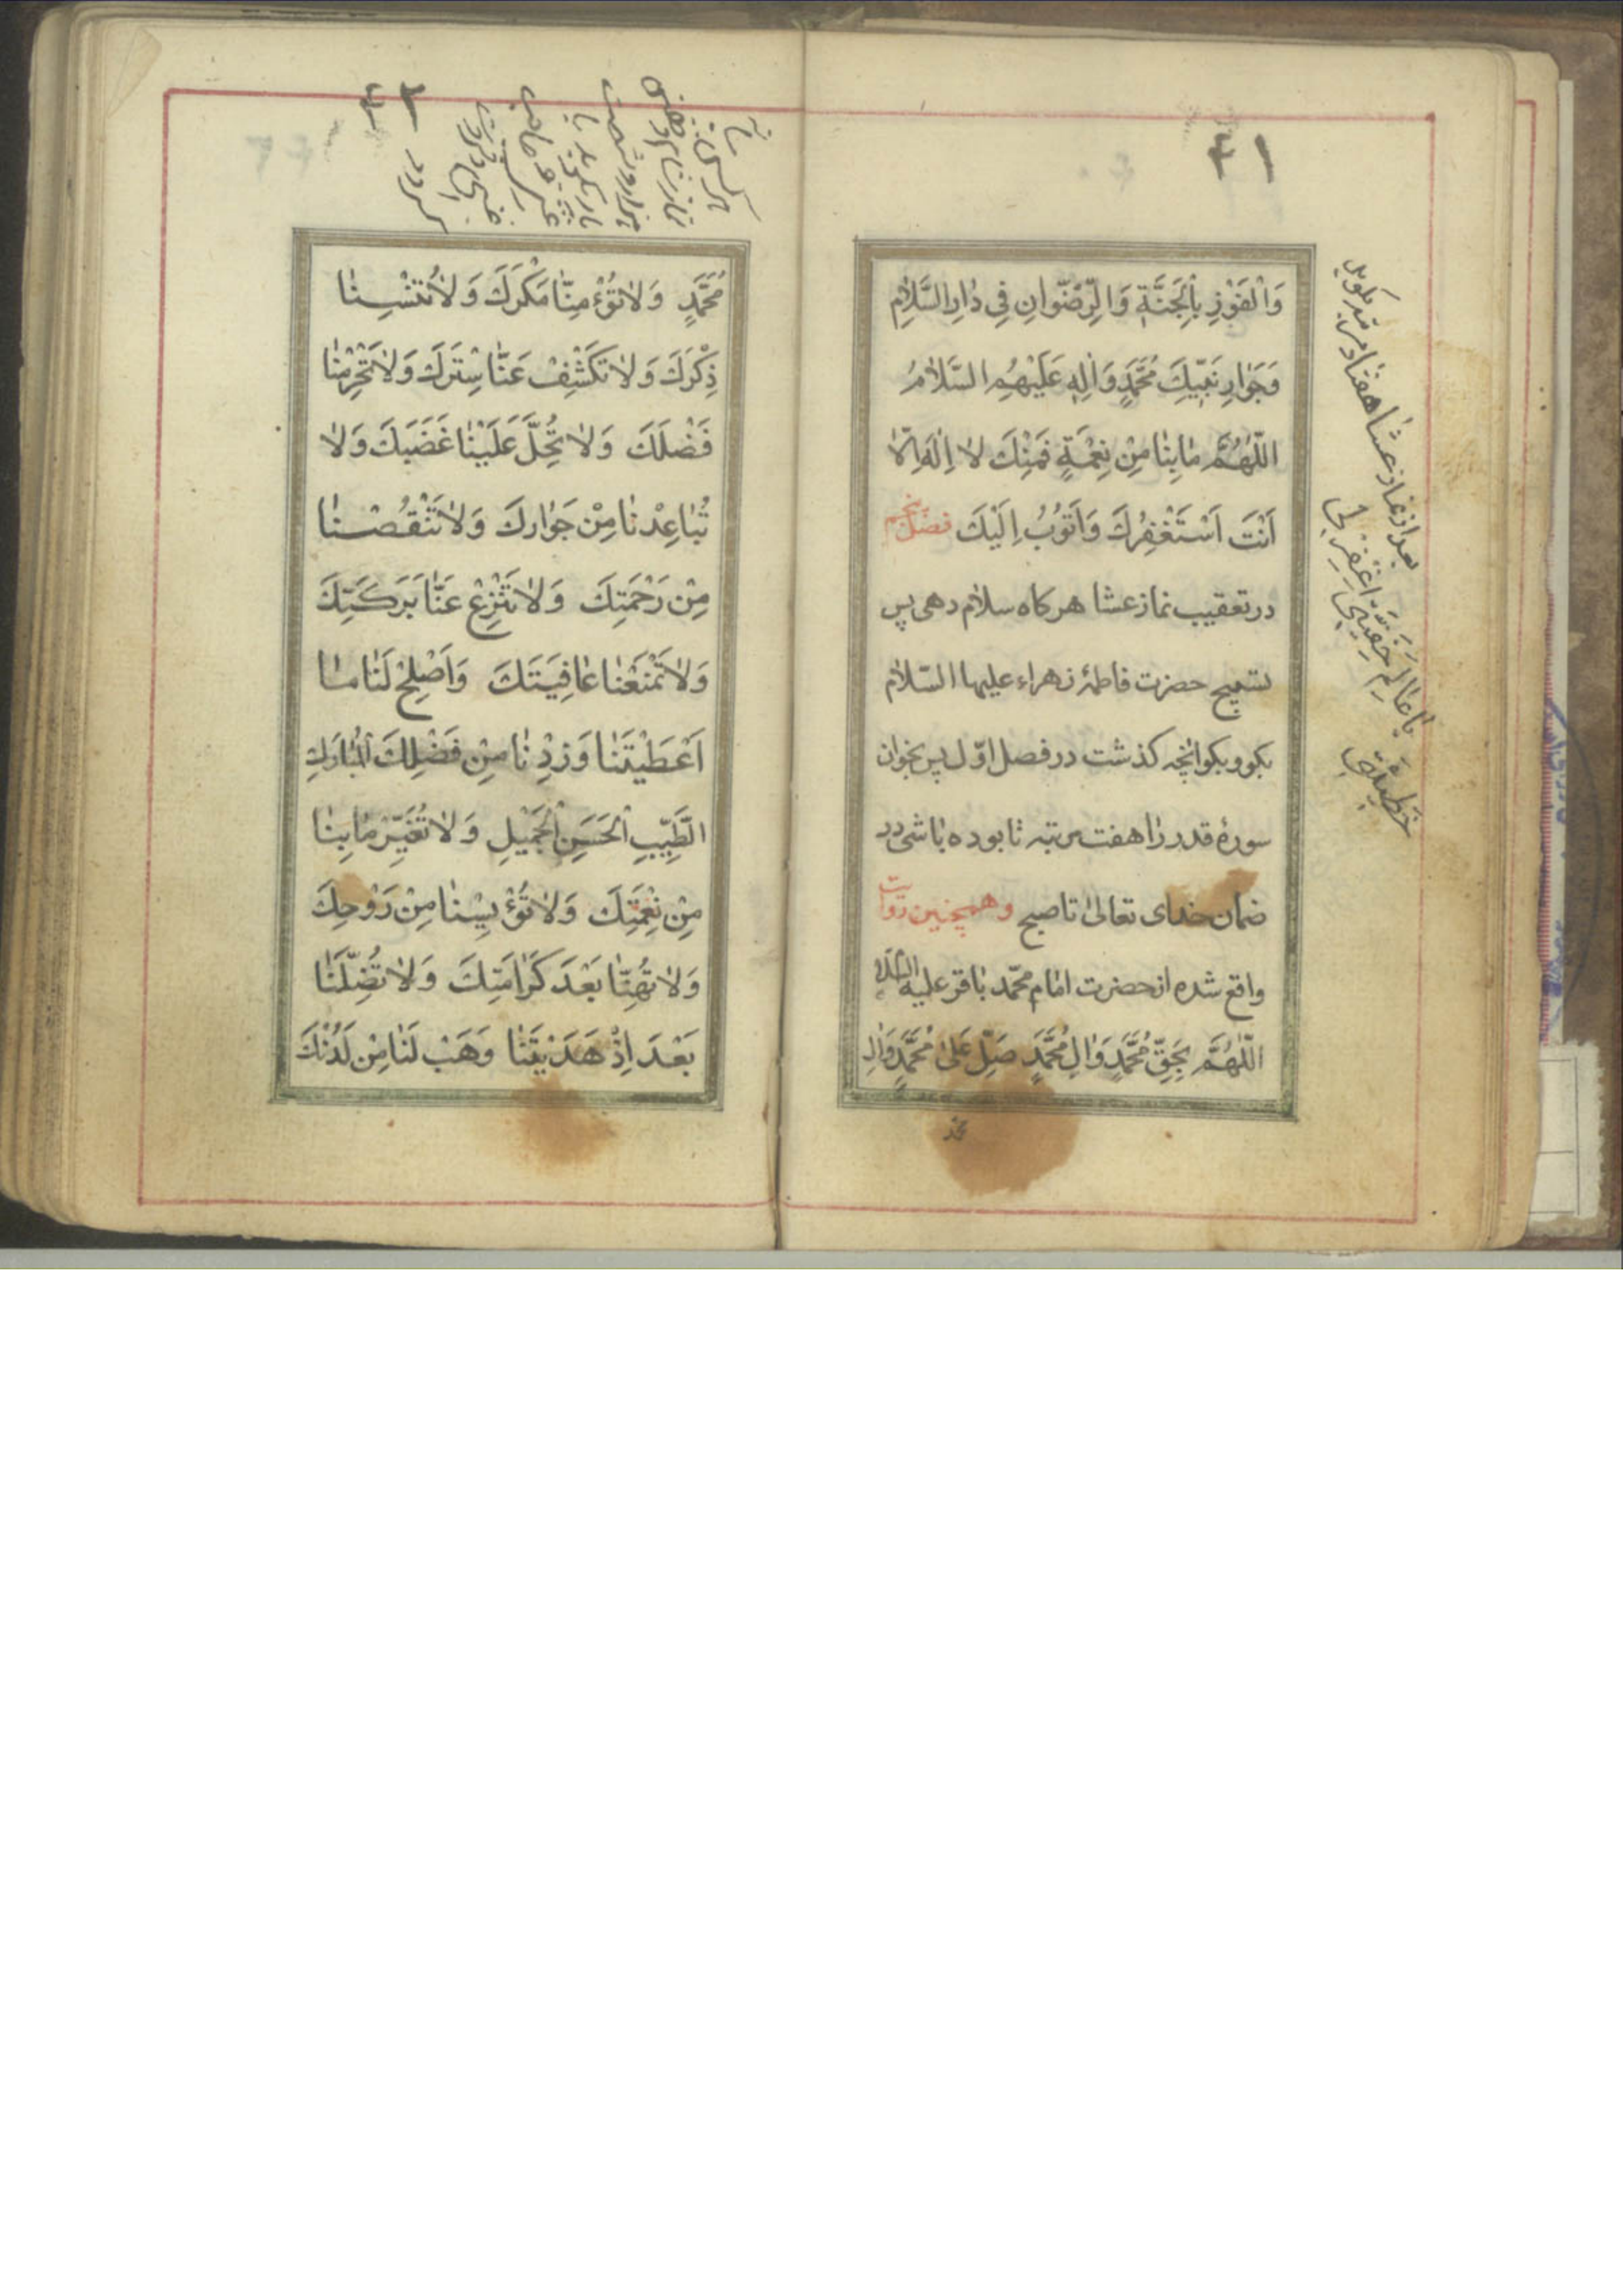 وَالْفَوْزِ بِالْجَنَّةِ وَالرِّضْوٰانِ فِي دٰارِ السَّلٰامِ
وَجَوٰارِ نَبِيِّكَ مُحَمَّدٍ وَاٰلِهِ عَلَيْهِمُ السَّلٰامُ
اَللّٰهُمَّ مٰابِنٰا مِنْ نِعْمَةٍ فَمِنْكَ لٰا اِلٰهَ اِلّٰا
اَنْتَ اَسْتَغْفِرُكَ وَاَتُوبُ اِلَيْكَ فصل پنجم
در تعقیب نماز عشا هر کاه سلام دهی پس
تسبیح حضرت فاطمهٔ زهراء علیها السّلام
بکو و بکو انچه کذشت در فصل اوّل پس بخوان
سورهٔ قدر را هفت مرتبه تا بوده باشی در
ضمان خدای تعالی تا صبح وهمچنین روایت
واقع شده از حضرت امام محمّد باقر علیه السّلام
اَللّٰهُمَّ بِحَقِّ مُحَمَّدٍ وَاٰلِ مُحَمَّدٍ صَلِّ عَلٰی مُحَمَّدٍ وَاٰلِ
محمد
بعد از نماز عشا هفتاد مرتبه بکوید
یٰا عٰالِمَ خَفِیَّتِي اِغْفِرْ لِي
خَطیئَتي
مُحَمَّدٍ وَلٰاتُؤْمِنّٰا مَكْرَكَ وَلٰاتُنْسِنٰا
ذِكْرَكَ وَلٰاتَكْشِفْ عَنّٰا سِتْرَكَ وَلٰاتَحْرِمْنٰا
فَضْلَكَ وَلٰاتُحِلَّ عَلَيْنٰا غَضَبَكَ وَلٰا
تُبٰاعِدْنٰا مِنْ جَوٰارِكَ وَلٰاتَنْقُصْنٰا
مِنْ رَحْمَتِكَ وَلٰاتَنْزِعْ عَنّٰا بَرَكَتِكَ
وَلٰاتَمْنَعْنٰا عٰافِيَتَكَ وَاَصْلِحْ لَنٰا مٰا
اَعْطَيْتَنٰا وَزِدْنٰا مِنْ فَضْلِكَ الْمُبٰارَكِ
الطَّيِّبِ الْحَسَنِ الْجَمِيلِ وَلٰاتُغَيِّرْ مٰابِنٰا
مِنْ نِعْمَتِكَ وَلٰاتُؤْيِسْنٰا مِنْ رَوْحِكَ
وَلٰاتُهِنّٰا بَعْدَ كَرٰامَتِكَ وَلٰاتُضِلَّنٰا
بَعْدَ اِذْ هَدَيْتَنٰا وَهَبْ لَنٰا مِنْ لَدُنْكَ